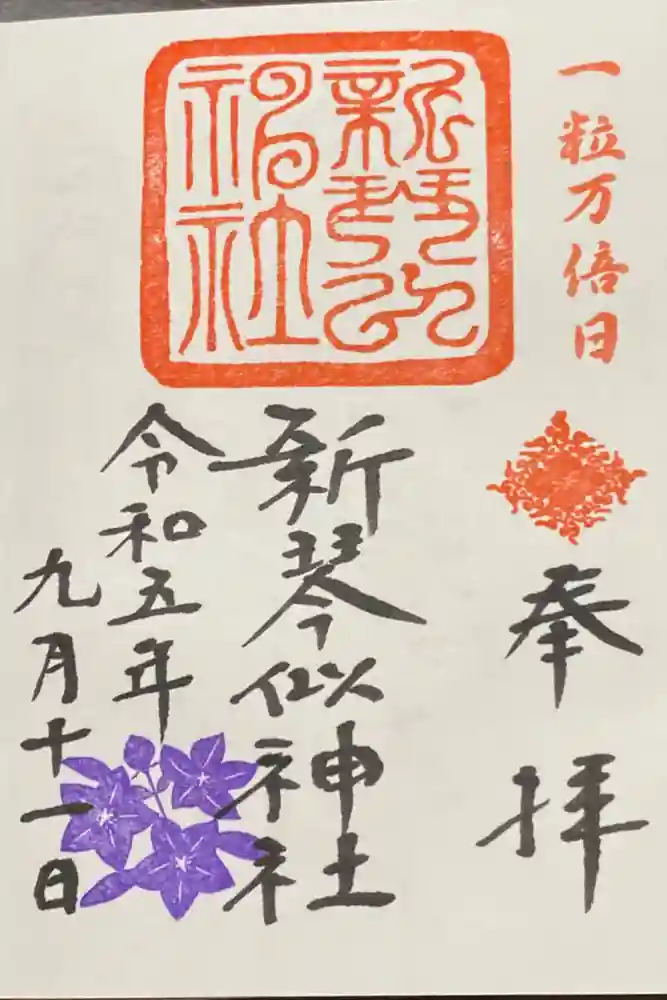 一粒万倍日
奉拝
新琴似神社
新琴似神社
令和五年
九月十一日